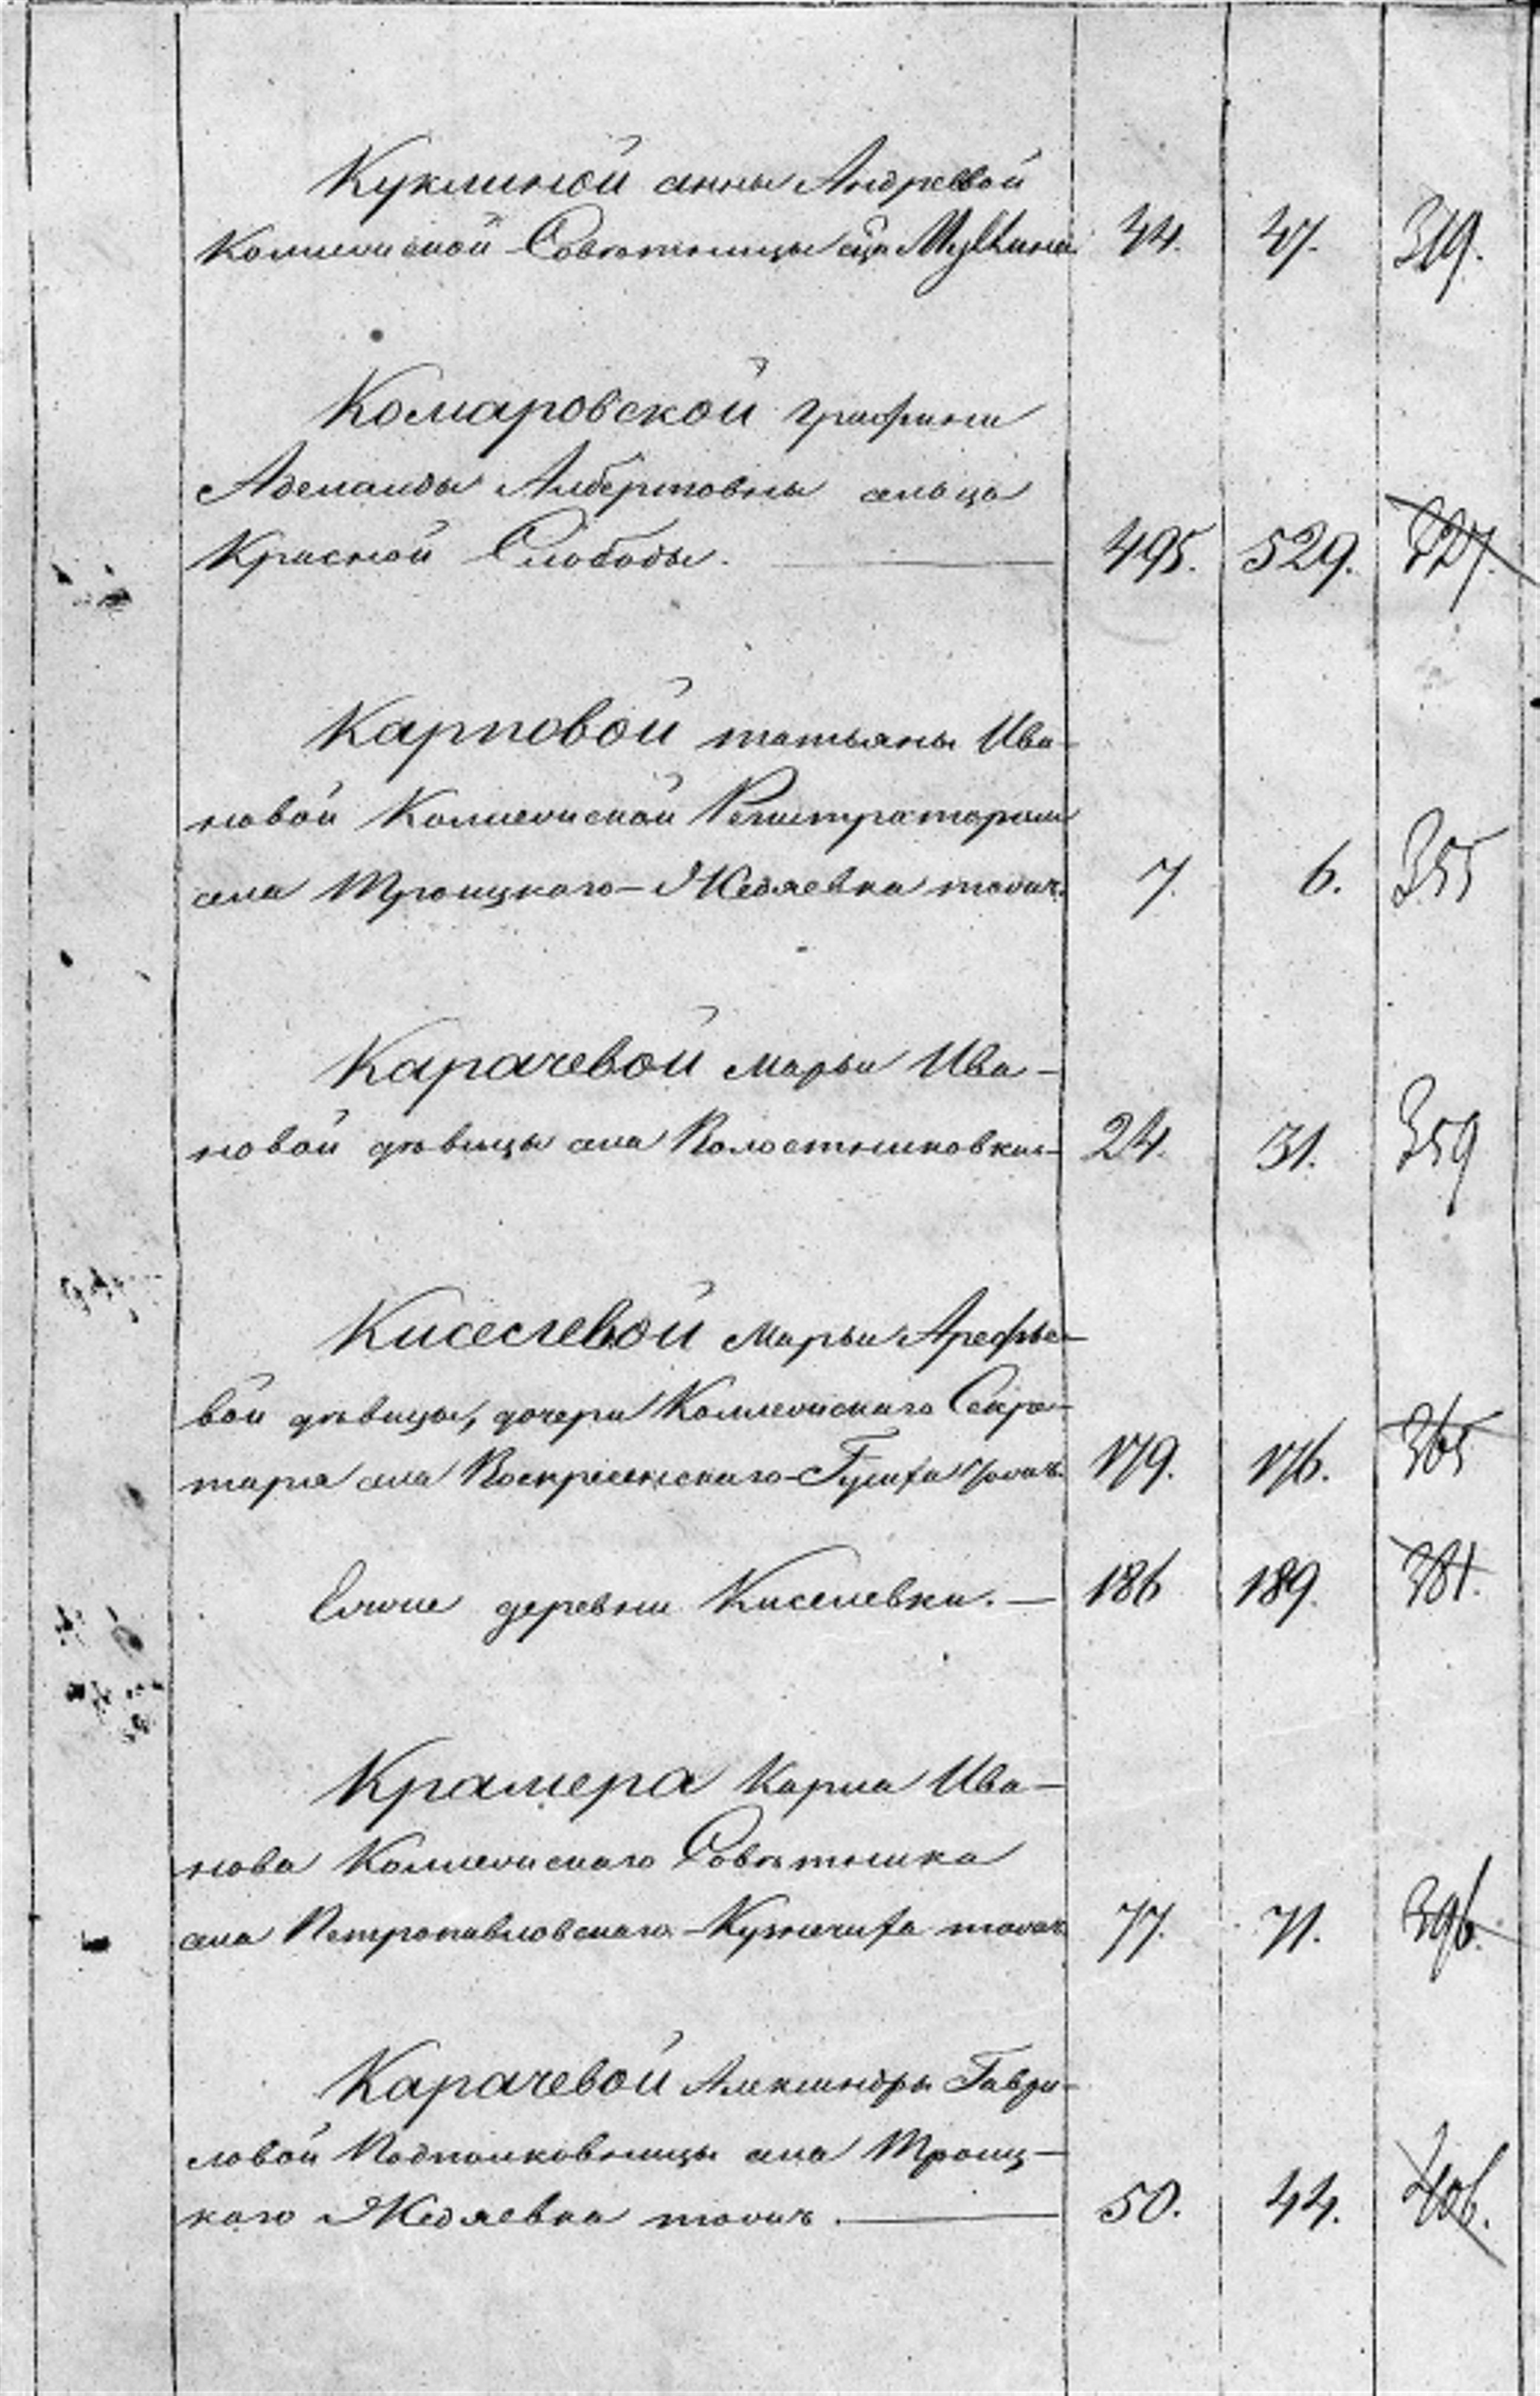 Куклиной Анны Андреевой
Коллежской Совѣтницы 44. 47. 319.
Комаровской Графини
Аделаиды Албертовны сельца
Красной Слободы. — 495. 529. 327.
Карповой татьяны Ива-
новой Коллежской Регистраторши
села Троицкаго-Жедяевка тожъ. 7. 6. 355
Карачевой Марьи Ива-
новой дѣвицы села 24. 31. 359
Киселевой Марьи Арефье-
вой дѣвицы, дочери Коллежскаго Секре-
таря села Воскресенскаго тожъ. 179. 176. 365
Ея же деревни Киселевки. — 186 189. 381.
Крамера Карла Ива-
нова Коллежскаго Совѣтника
села Петропавловскаго тожъ 77. 71. 396.
Карачевой Александры Гаври-
ловой Подполковницы села Троиц-
каго Жедяевка тожъ. — 50. 44. 406.